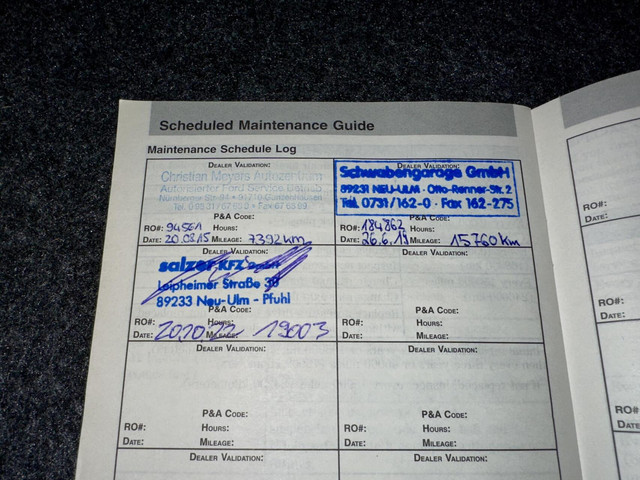 Scheduled Maintenance Guide
Maintenance Schedule Log
DEALER VALIDATION:
Christian Meyers Autozentrum
Autorisierter Ford Service Betrieb
P&A CODE:
RO#: 94561 HOURS:
DATE: 20.08.15 MILEAGE: 7392km
Schwabengarage GmbH
89231 NEU-ULM - Otto-Renner-Str. 2
Tel. 0731/162-0 · Fax 162-275
P&A CODE:
RO#: 184862 HOURS:
DATE: 26.6.19 MILEAGE: 15760km
DEALER VALIDATION:
salzer KFZ
Leipheimer Straße 38
89233 Neu-Ulm - Pfuhl
P&A CODE:
RO#: HOURS:
DATE: 20.10.22 MILEAGE: 19003
DEALER VALIDATION:
P&A CODE:
RO#: HOURS:
DATE: MILEAGE:
DEALER VALIDATION:
P&A CODE:
RO#: HOURS:
DATE: MILEAGE:
DEALER VALIDATION:
P&A CODE:
RO#: HOURS:
DATE: MILEAGE:
DEALER VALIDATION:
DEALER VALIDATION:
RO#:
DATE:
RO#:
DATE: